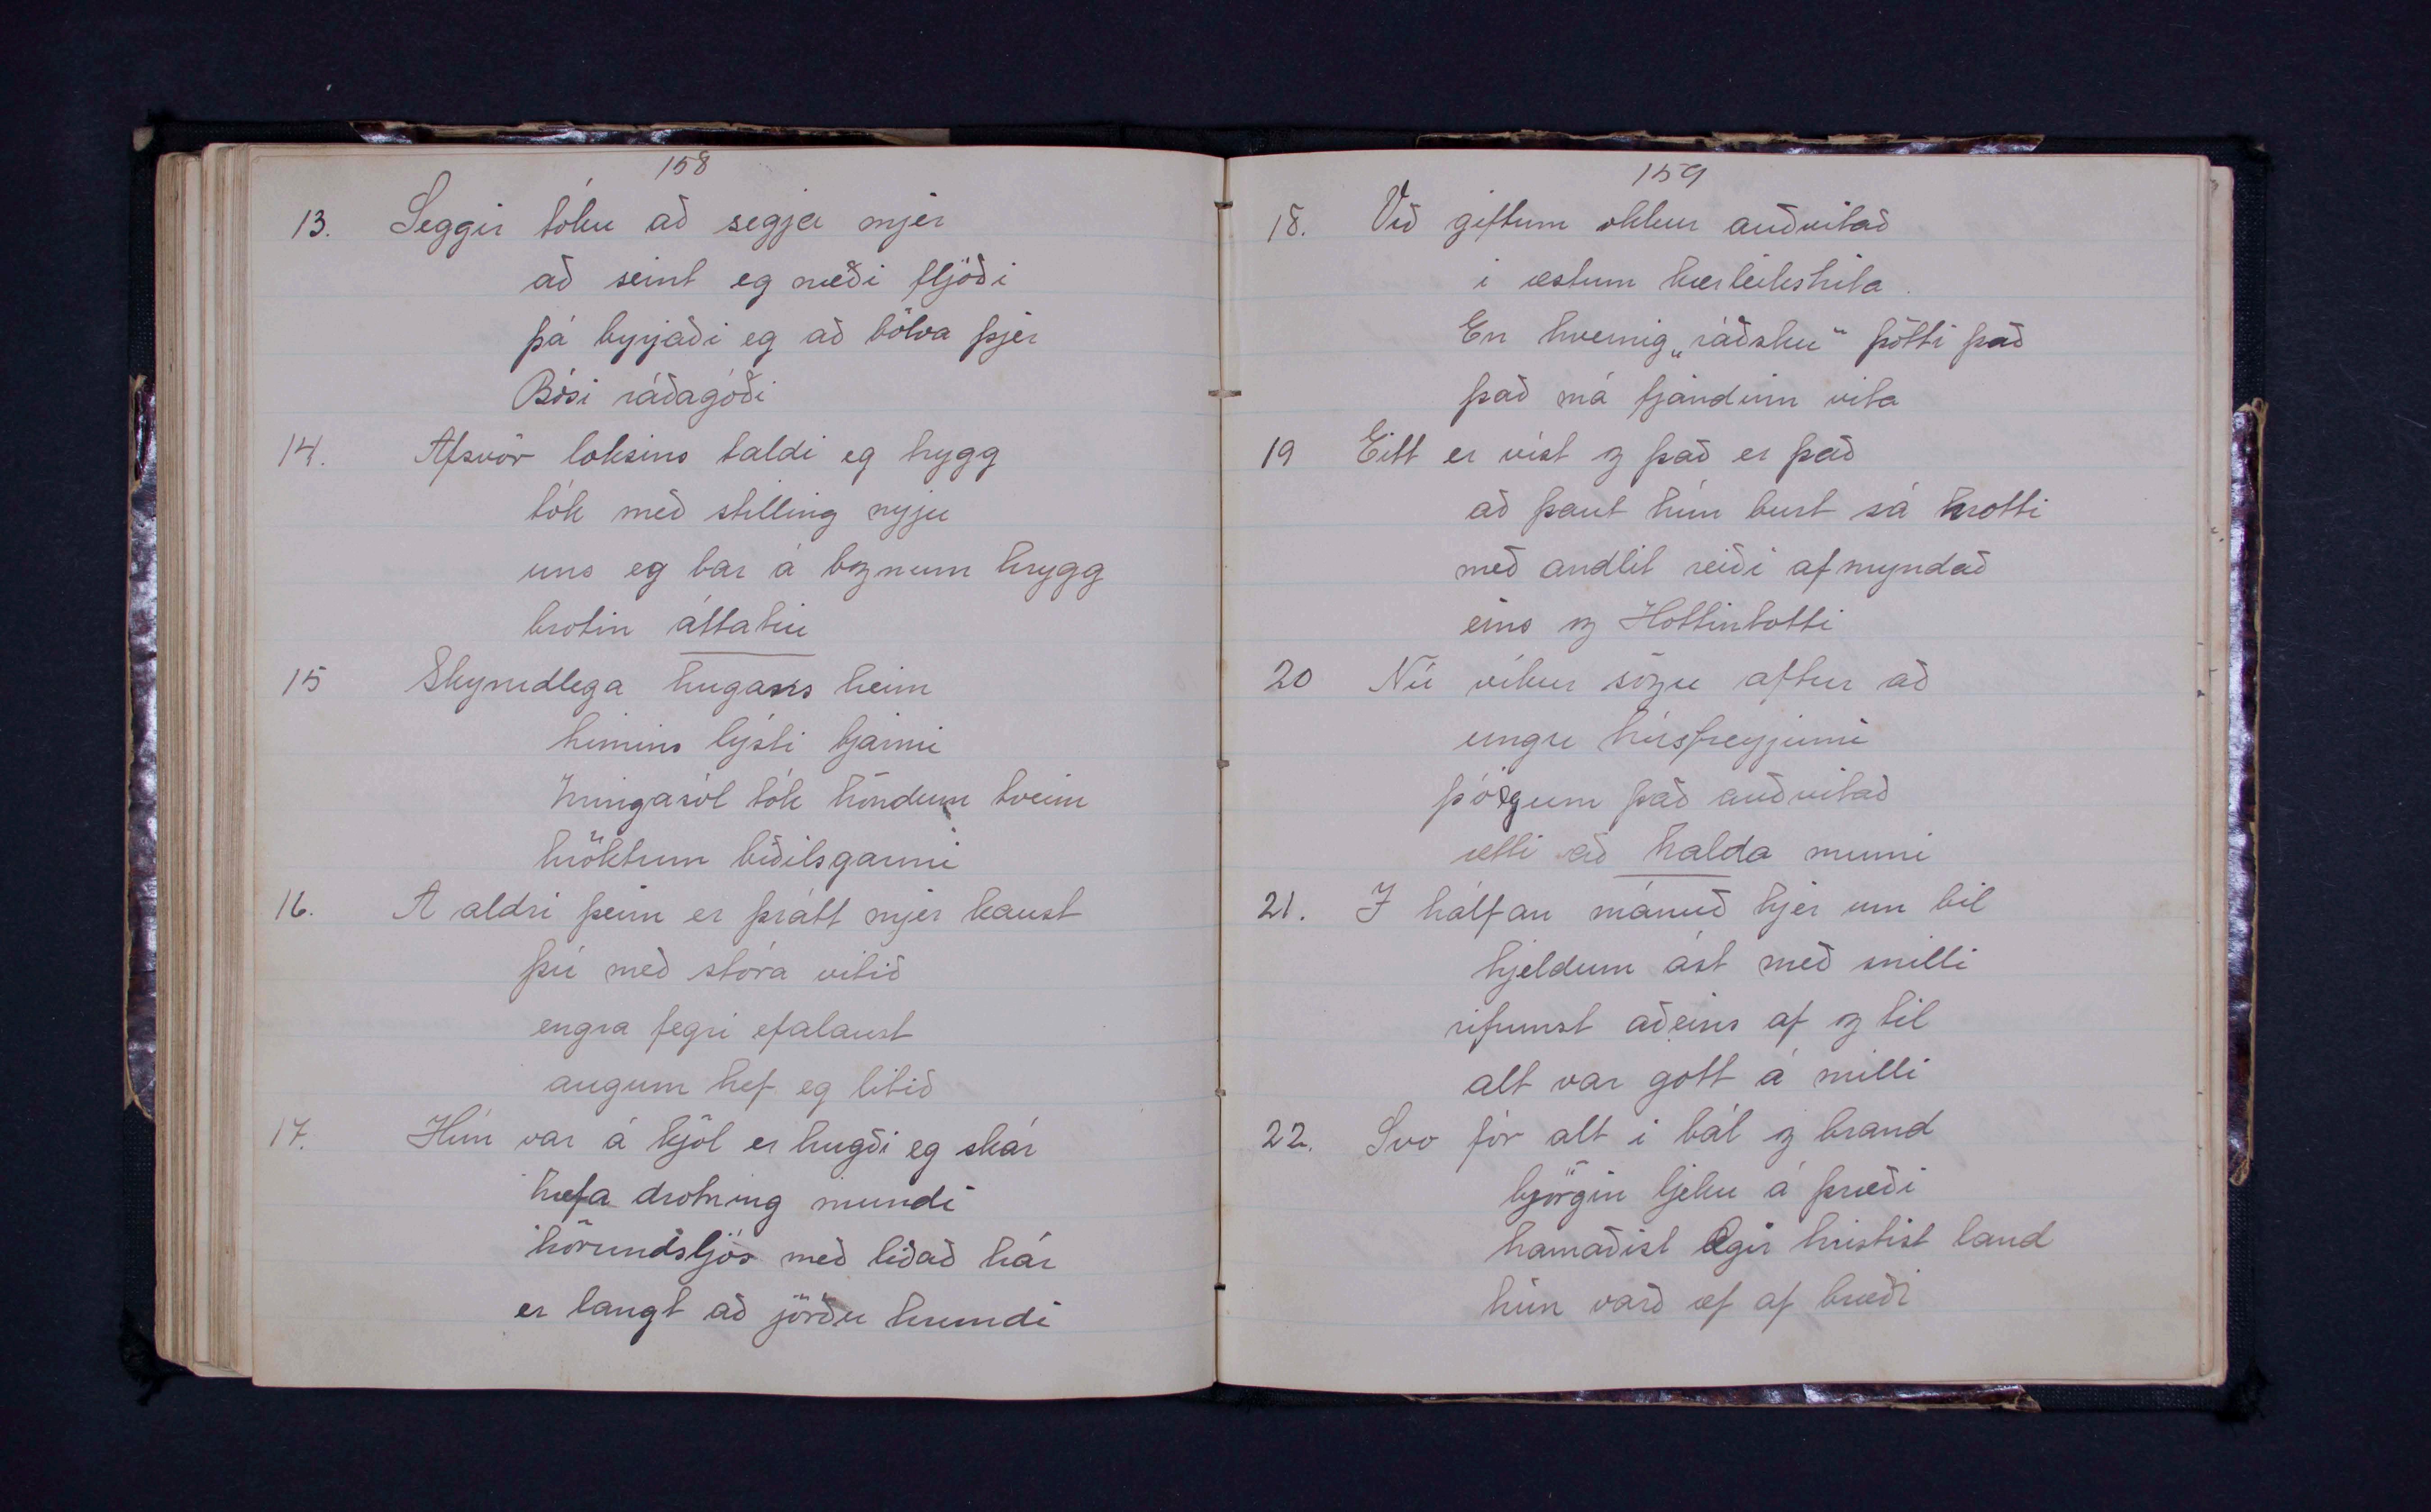 158
13. Seggir tóku að segja mjer
að seint eg næði fljóði
þá byrjaði eg að bölva þjer
Bósi ráðagóði
14. Afsvör loksins taldi eg hygg
tók með stilling nyju
uns eg bar á bognum hrygg
brotin áttatíu
15 Skyndlega hugans heim
himins lýsti bjarmi
hringasól tók höndum tveim
hröktum biðilsgarmi
16. A aldri þeim er þrátt mjer haust
þú með stóra vitið
engra fegri efalaust
augum hef eg litið
17. Hún var á kjól er hugði eg skár
hæfa drotning mundi
hörundsljós með liðað hár
er langt að jörðu hrundi
159
18. Við giftum okkur auðvitað
i æstum kærleikshita.
En hvernig „ráðsku“ þótti það
það má fjandinn vita
19 Eitt er víst og það er það
að þaut hún burt sá hrotti
með andlit reiði afmyndað
eins og Hottintotti
20 Nú víkur sögu aftur að
ungu húsfreyjunni
þó sgum það auðvitað
ætti að halda munni
21. I hálfan mánuð hjer um bil
hjeldum ást með snilli
rifumst aðeins af og til
alt var gott á milli
22. Svo fór alt i bál og brand
björgin ljeku á þræði
hamaðist Ægir hristist land
hún varð æf af bræði